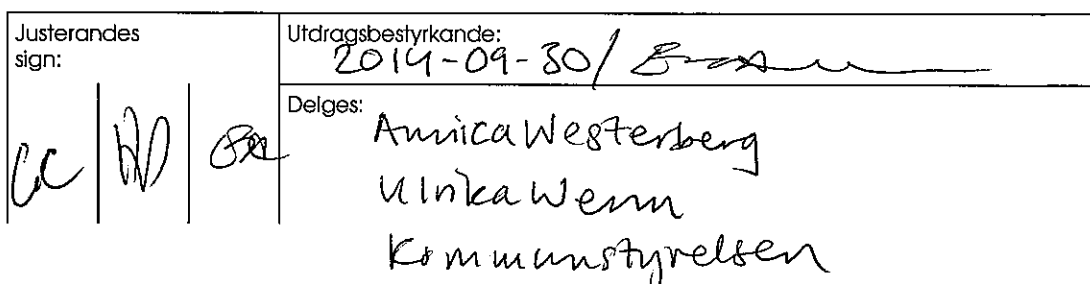 Justerandes
sign:
Utdragsbestyrkande:
2014-09-30/
Delges:
Annica Westerberg
Ulrika Wenn
Kommunstyrelsen